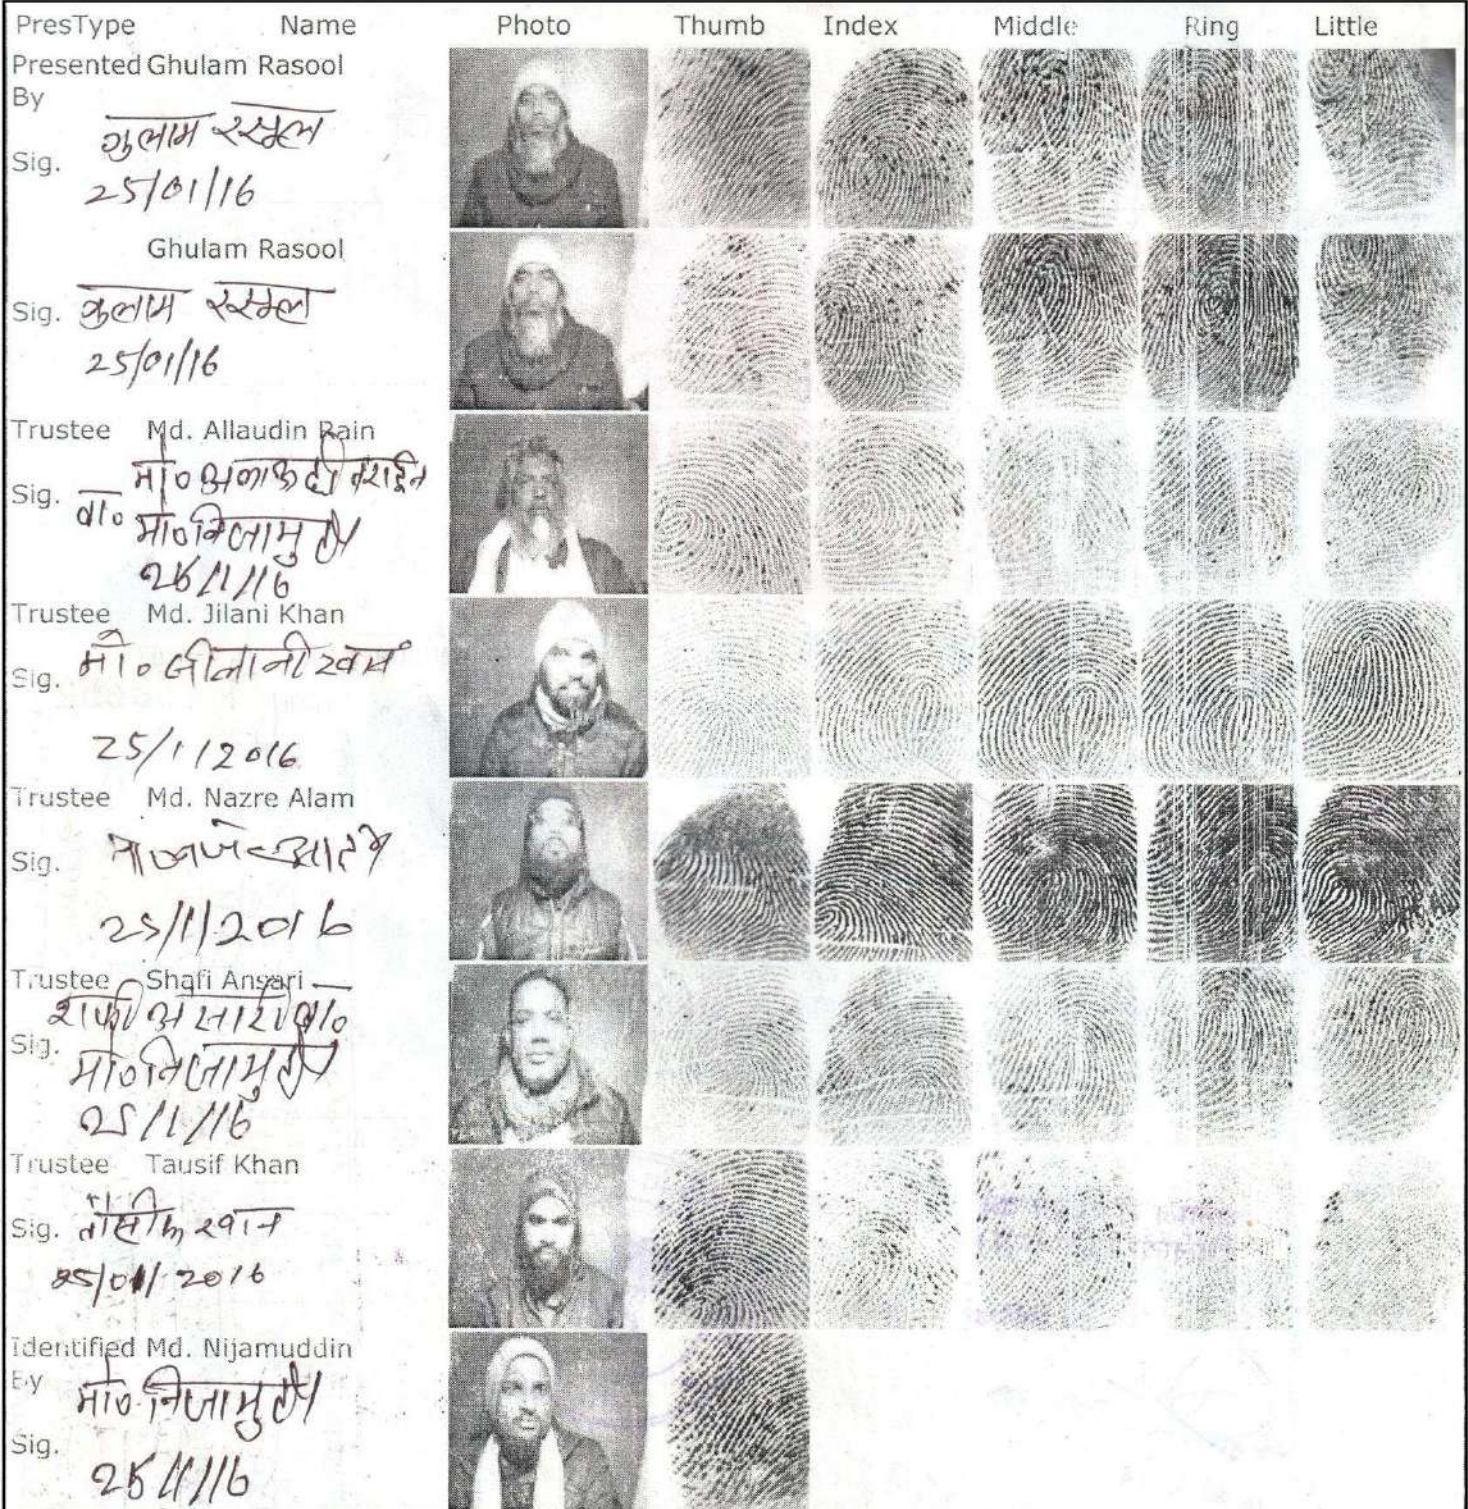 PresType Name Photo Thumb Index Middle Ring Little
Presented Ghulam Rasool
By
गुलाम रसूल
Sig.
25/01/16
Ghulam Rasool
Sig. गुलाम रसूल
25/01/16
Trustee Md. Allaudin Rain
मो०
Sig.
वा० मो० निजामुद्दीन
25/1/16
Trustee Md. Jilani Khan
Sig. मो० जीलानी खान
25/1/2016
Trustee Md. Nazre Alam
Sig.
25/1/2016
Trustee Shafi Ansari
शफी अंसारी वा०
Sig. मो० निजामुद्दीन
25/1/16
Trustee Tausif Khan
Sig. तौसीफ खान
25/01/2016
Identified Md. Nijamuddin
By
मो० निजामुद्दीन
Sig.
25/1/16